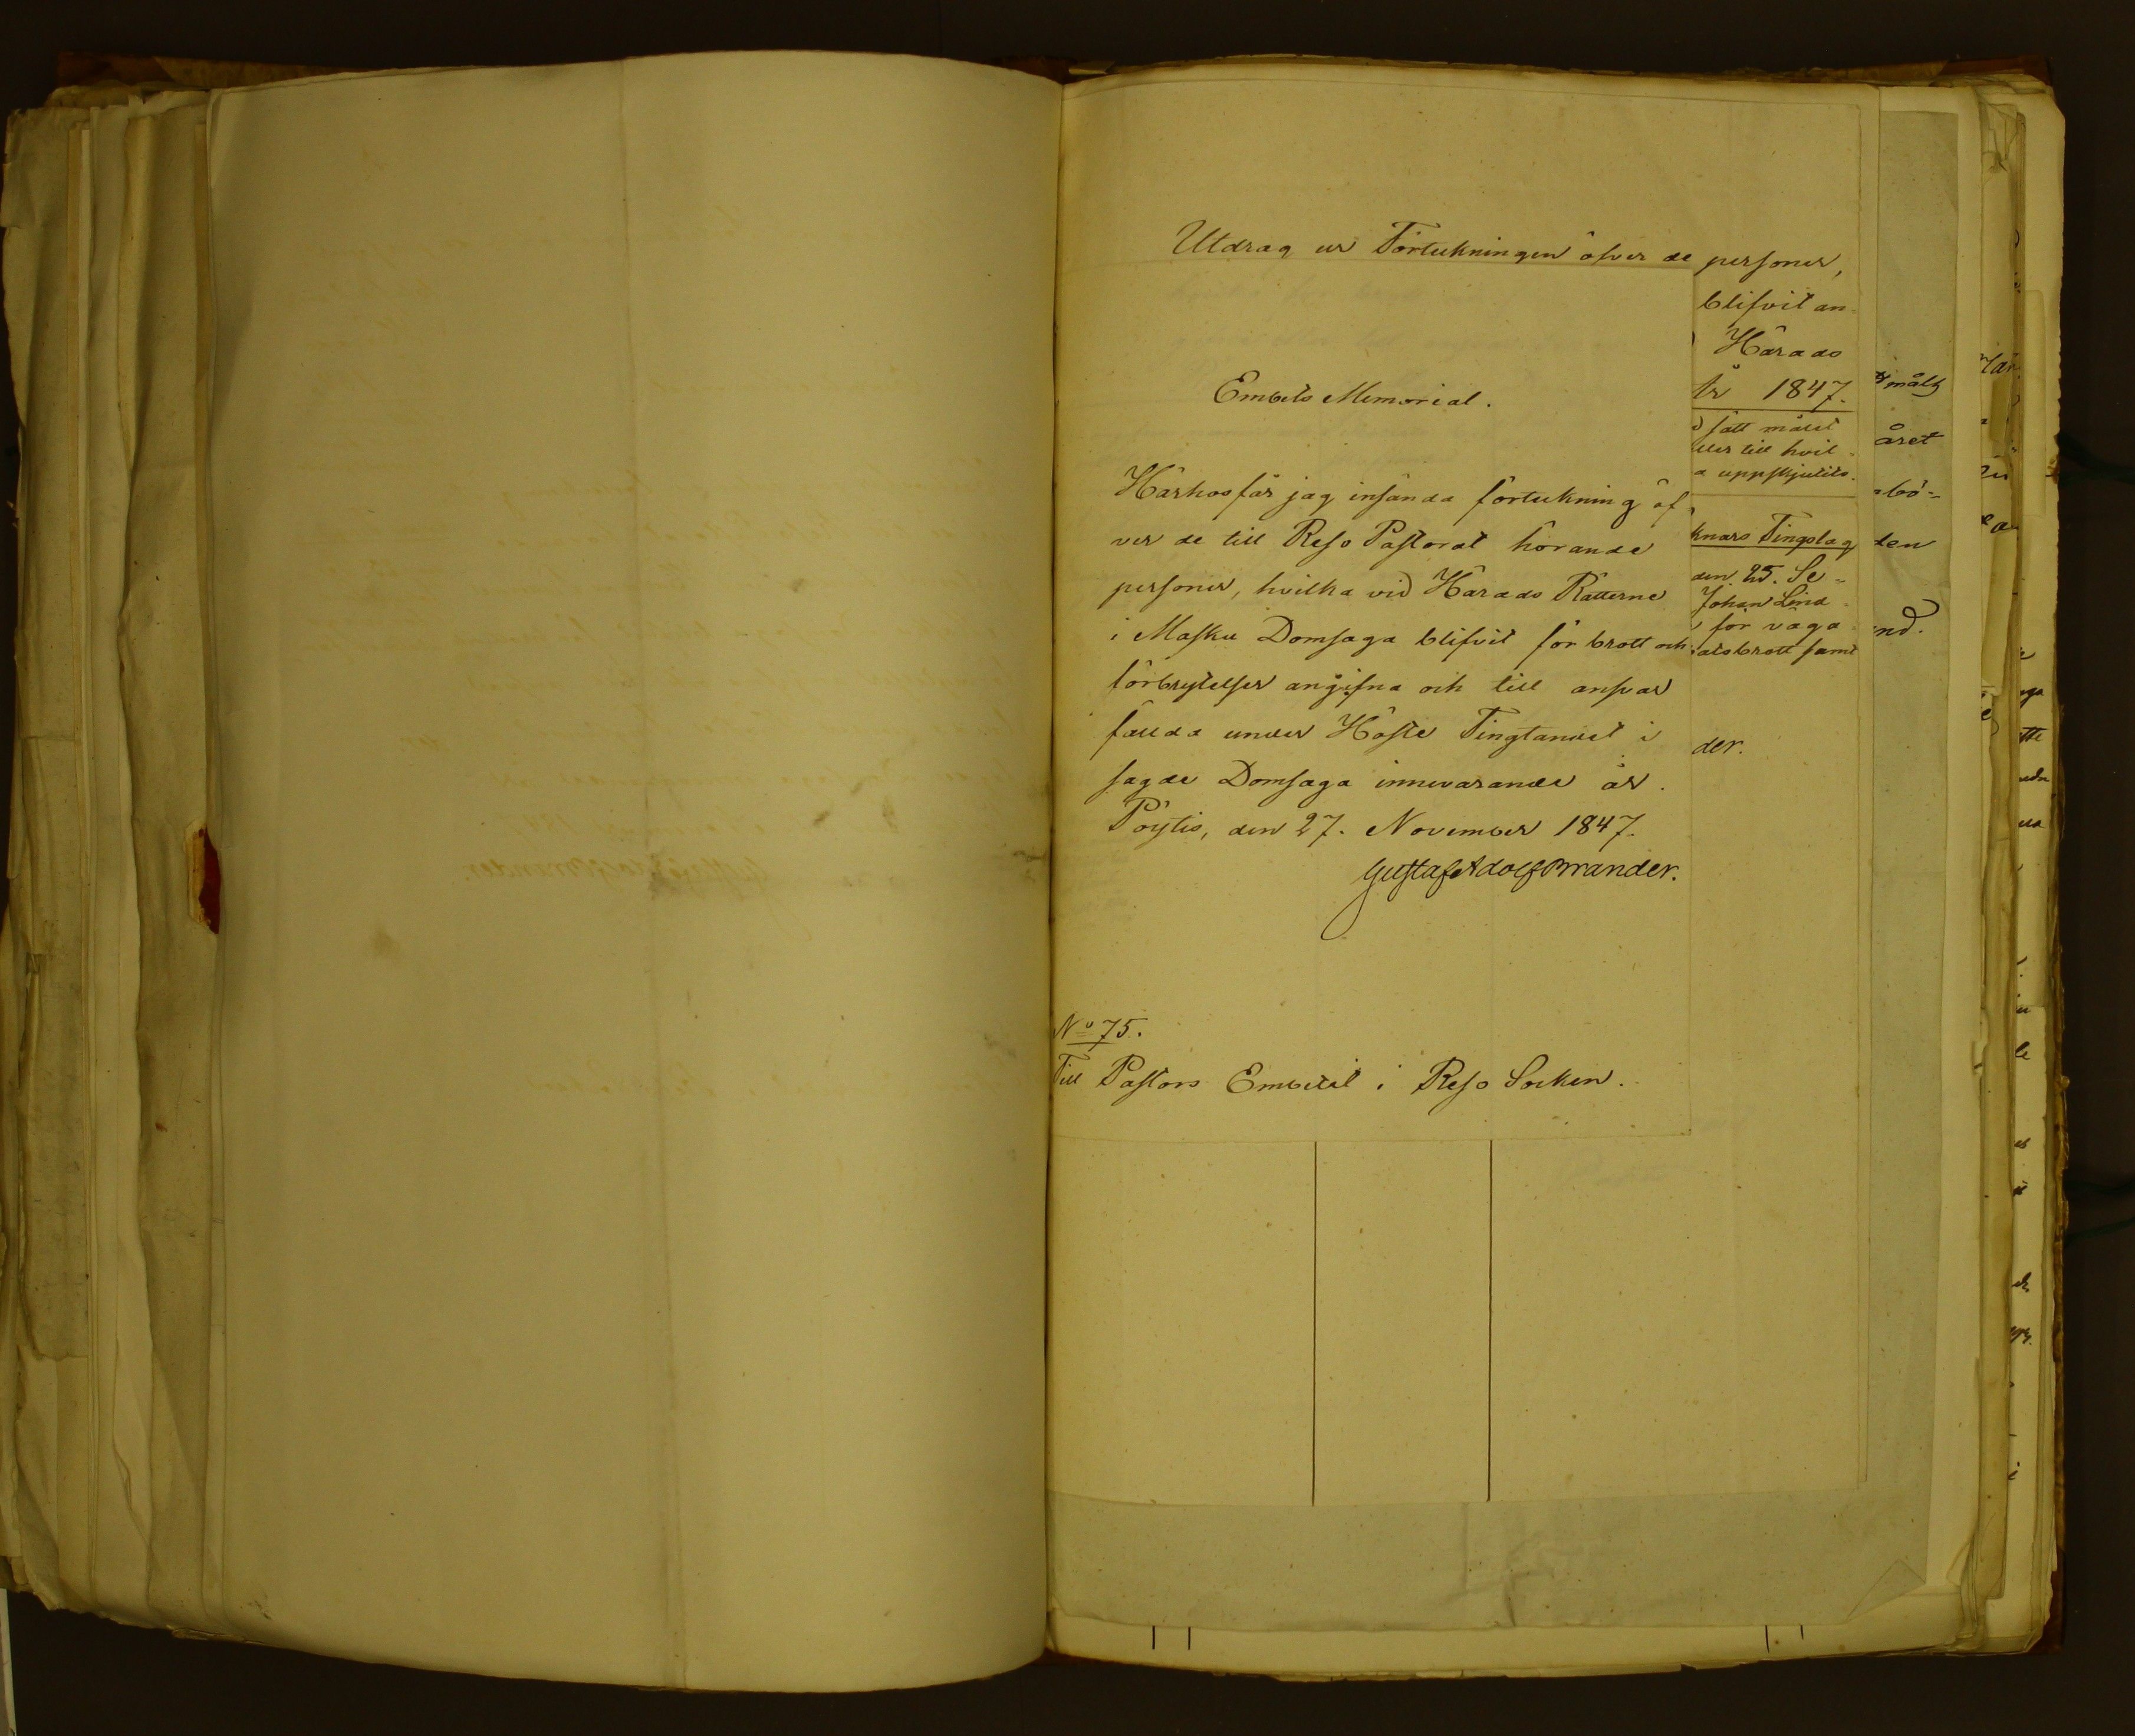 Utdrag ur Förteckningen öfver de personer,
blifvit an-
Härads
år 1847.
Embets Memorial.
Härhos får jag insända förteckning öf
ver de till Reso Pastorat hörande
personer, hvilka vid Härads Rätterne
i Masku Domsaga blifvit för brott och
förbrytelser angifna och till ansvar
fällda under Höste Tingtandet i
sagde Domsaga innevarande år.
Pöytis, den 27. November 1847.
Gustaf Adolf Brander.
No 75.
Till Pastors Embetet i Reso Socken.
sätt målet
eller till hvil-
a uppskjutits.
knars Tingslag
den 25. Se-
Johan Lind-
för våga
atsbrott samt
der.
målb
året
bö-
den
nd.